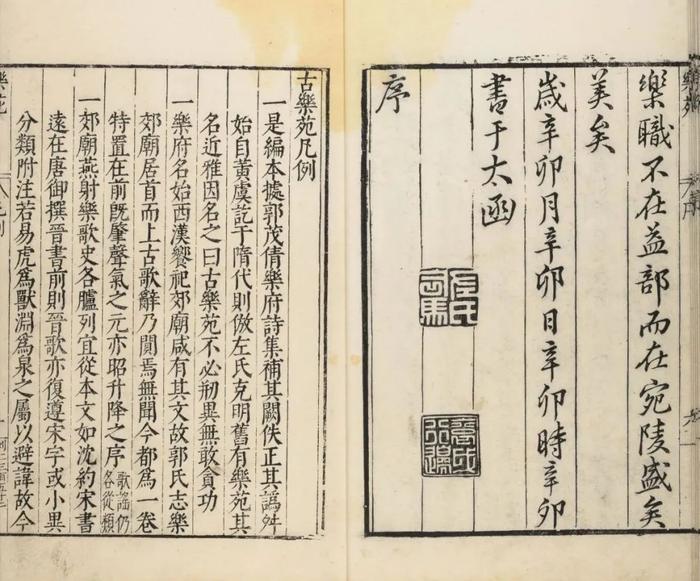 樂職不在益部而在宛陵盛矣
美矣
歲辛卯月辛卯日辛卯時辛卯
書于太函
序
古樂苑凡例
一是編本據郭茂倩樂府詩集補其闕佚正其譌舛
始自黃虞訖于隋代則倣左氏克明舊有樂苑其
名近雅因名之曰古樂苑不必剏異無敢貪功
一樂府名始西漢饗祀郊廟咸有其文故郭氏志樂
郊廟居首而上古歌辭乃閴焉無聞今都爲一卷
特置在前既肇聲氣之元亦昭升降之序歌謠仍各從類
一郊廟燕射樂歌史各臚列宜從本文如沈約宋書
遠在唐御撰晉書前則晉歌亦復遵宋字或小異
分類附注若易虎爲獸淵爲泉之屬以避諱故今